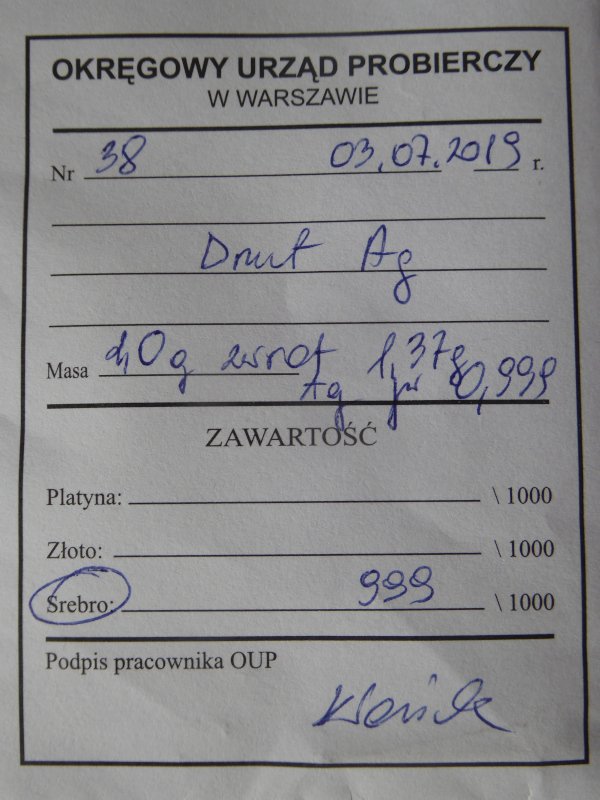 OKRĘGOWY URZĄD PROBIERCZY
W WARSZAWIE
Nr 38 03.07.2019 r.
Drut Ag
Masa 2,0g zwrot 1,37g
Ag pr 0,999
ZAWARTOŚĆ
Platyna: \ 1000
Złoto: \ 1000
Srebro: 999 \ 1000
Podpis pracownika OUP